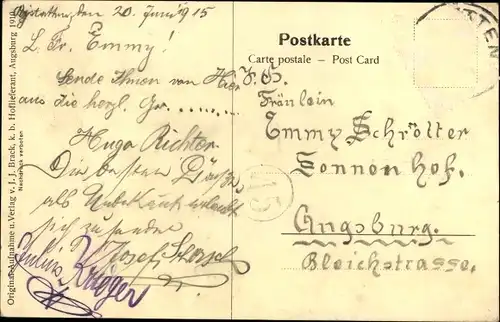 den 20. Juni 1915
L. Fr. Emmy!
Sende Ihnen von Hier
aus die herzl. Gr.........
Hugo Richter.
Die besten Grüße
als Unbekannt erlaubt
sich zu senden
Josef Storsch
Julius Krieger
Original-Aufnahme u. Verlag v. J. J. Brack, k. b. Hoflieferant, Augsburg
Nachdruck verboten
Postkarte
Carte postale – Post Card
Fräulein
Emmy Schrötter
Sonnen Hof.
Augsburg.
Bleichstrasse.
TTEN